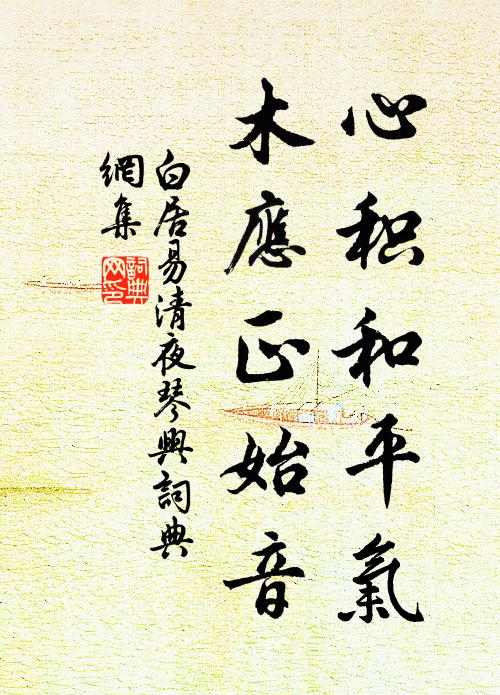 心积和平氣
木應正始音
白居易清夜琴興詞典
網集
詞典
网印